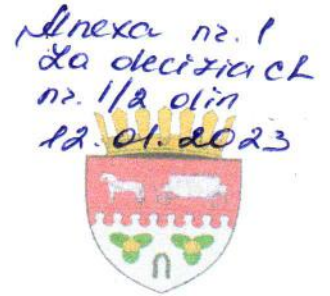 Anexa nr. 1
La decizia CL
nr. 1/2 din
12.01.2023